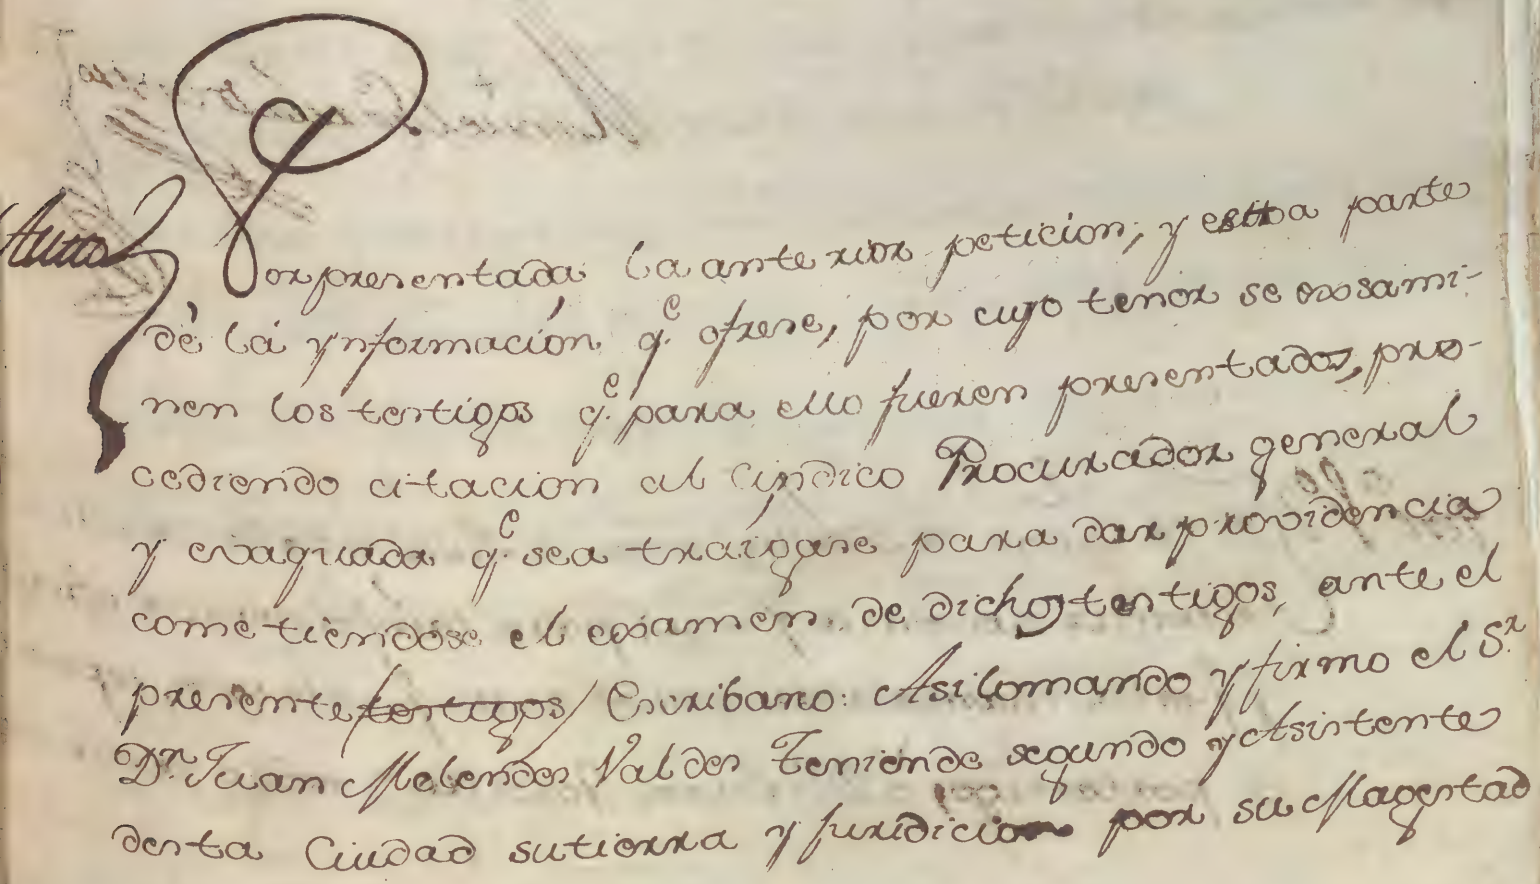 Auto
Por presentada la anterior peticion, y esta parte
dè la ynformación q.e ofrese, por cuyo tenor se exsami-
nen los testigos q.e para ello fueren presentados, pro-
cediendo citacion al Cindico Procurador general
y evaquada q.e sea traigase para dar providencia
cometiendose el examen de dichos testigos, ante el
presente testigos / Escribano: Asi lo mando y firmo el S.r
D.n Juan Melendes Valdes Teniende segundo y Asistente
desta Ciudad su tierra y Juridicion por su Magestad